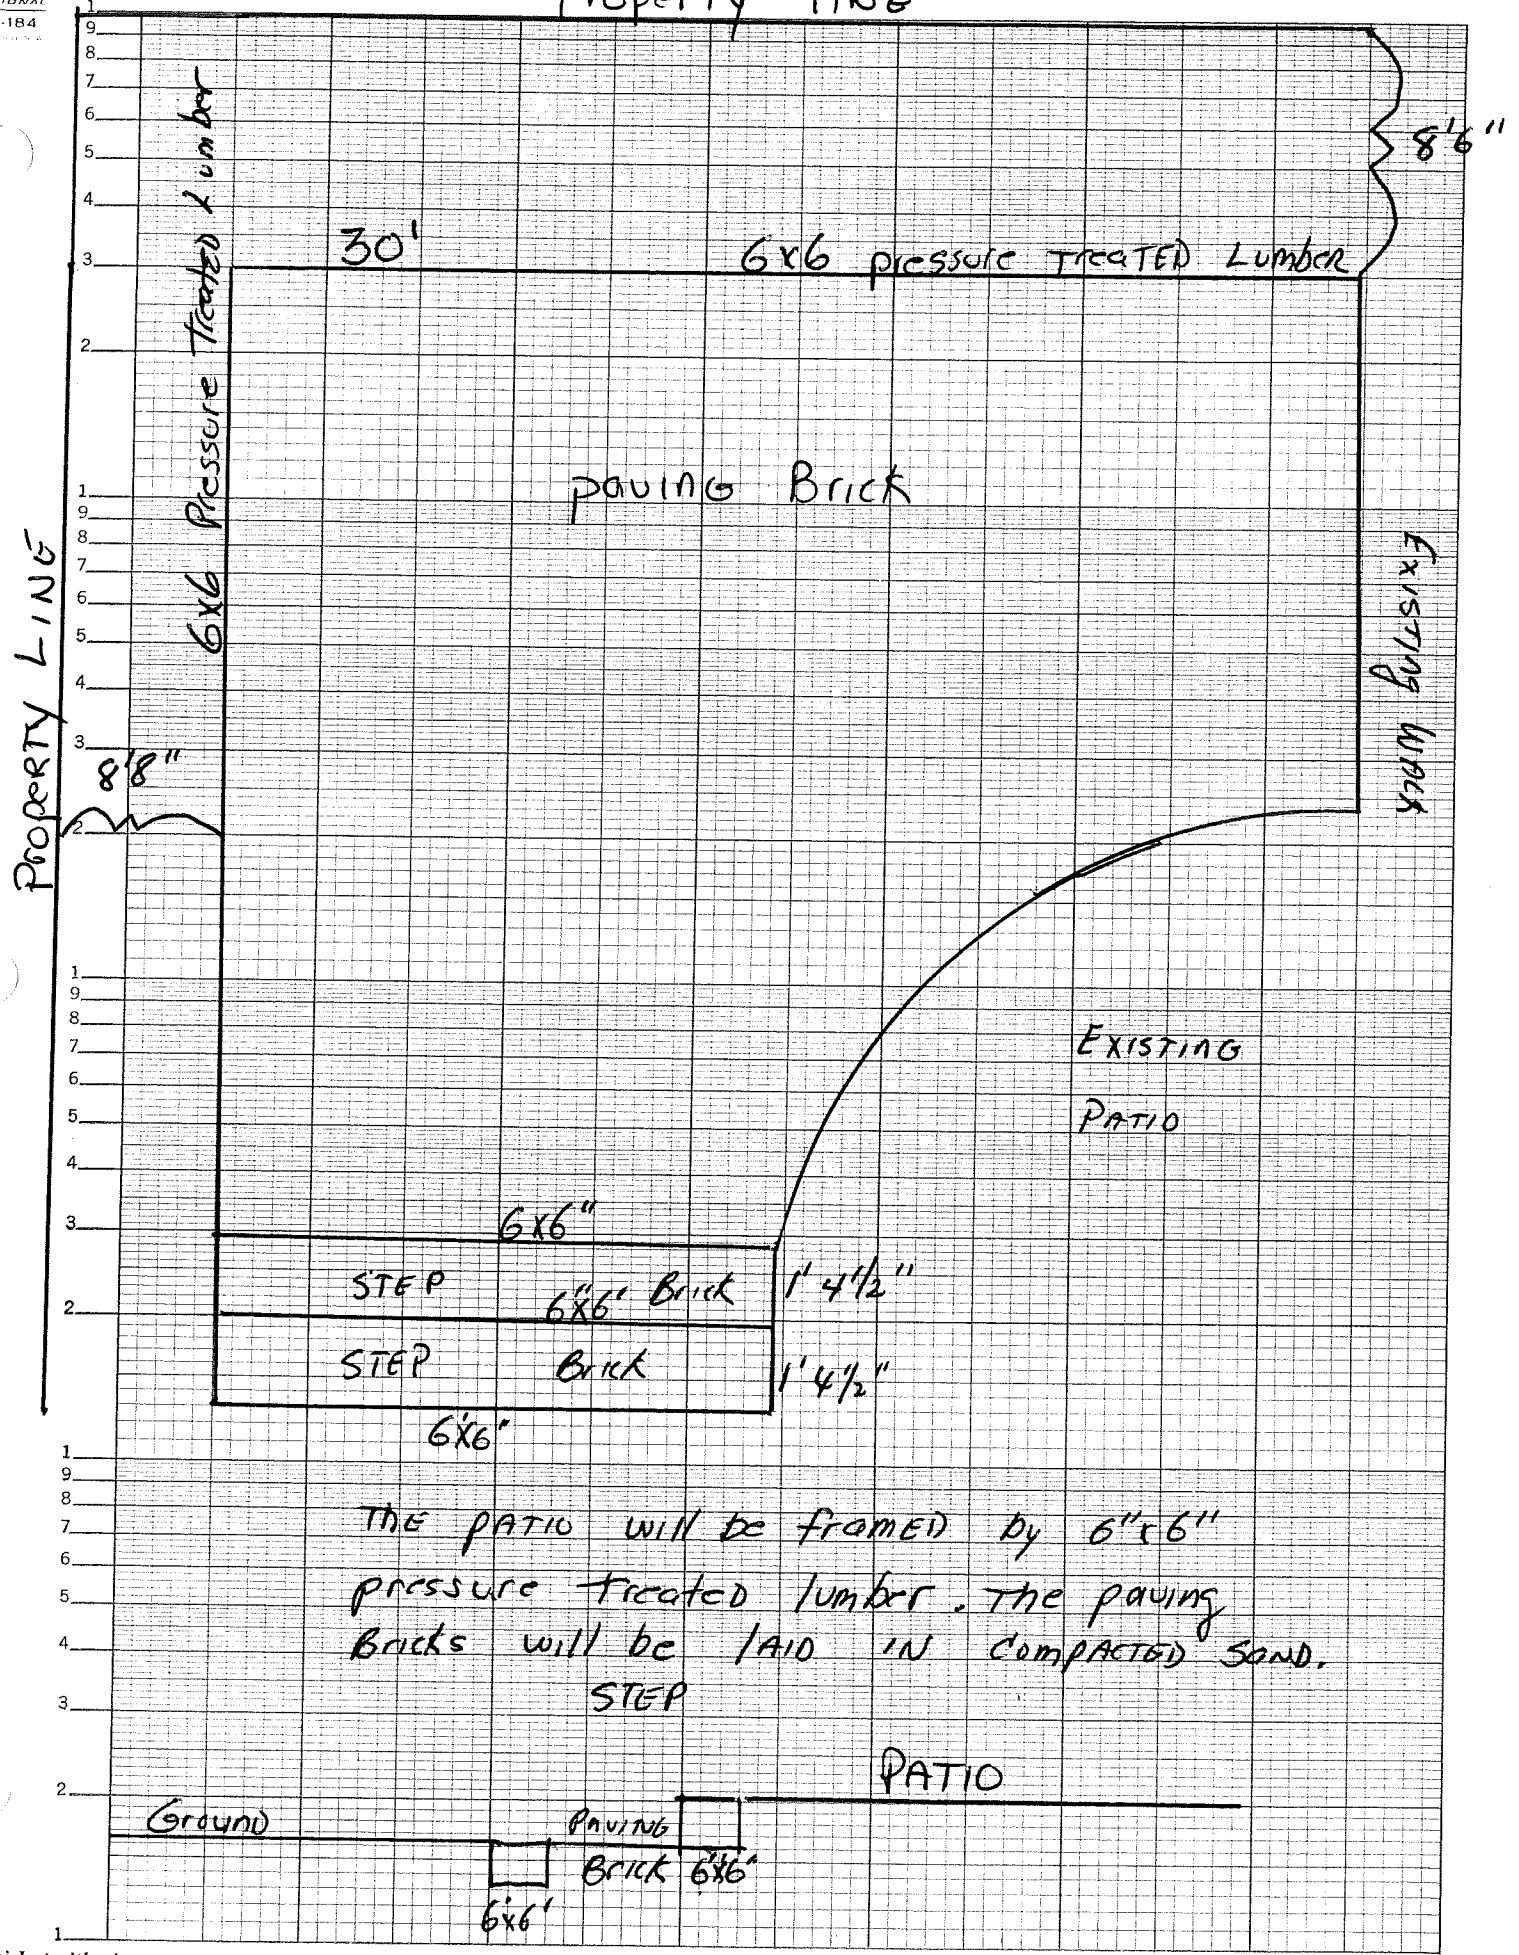 -184
Property LINE
1
9
8
7
6
5
4
3
2
1
9
8
7
6
5
4
3
2
1
9
8
7
6
5
4
3
2
1
9
8
7
6
5
4
3
2
1
8'6"
30'
6x6 pressure TreaTED Lumber
6x6 Pressure Treated Lumber
paving Brick
Property LINE
8'8"
Existing Walk
Existing
Patio
6x6"
STEP 6"x6" Brick 1' 4 1/2"
STEP Brick 1' 4 1/2"
6"x6"
The patio will be framed by 6"x6"
pressure treated lumber. The paving
Bricks will be laid in compacted sand.
STEP
PATIO
Ground
Paving
Brick 6"x6"
6"x6"